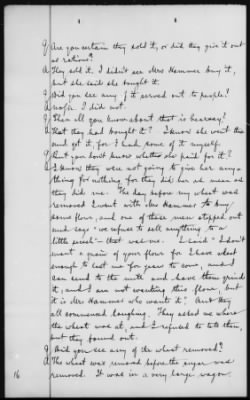 4 4
Q Are you certain they sold it, or did they give it out
as rations?
A They sold it. I didn't see Mrs Hammer buy it,
but she said she bought it.
Q Did you see any of it served out to people?
A No sir I did not.
Q Then all you know about that is hearsay?
A That they had bought it? I know she went there
and got it, for I had some of it myself.
Q But you don't know whether she paid for it?
A I know they were not going to give her any-
thing for nothing, for they did her as mean as
they did me. The day before my wheat was
removed I went with Mrs Hammer to buy
some flour, and one of these men stepped out
and says "we refuse to sell anything to a
little secesh" – that was me. I said "I don't
want a grain of your flour for I have wheat
enough to last me for years to come, and I
can send to the mill and have them grind
it, and I am not wanting this flour, but
it is Mrs Hammer who wants it. And they
all commenced laughing. They asked me where
the wheat was at, and I refused to tell them,
but they found out.
Q Did you see any of the wheat removed?
A The wheat was removed before the sugar was
removed. It was in a very large wagon
16